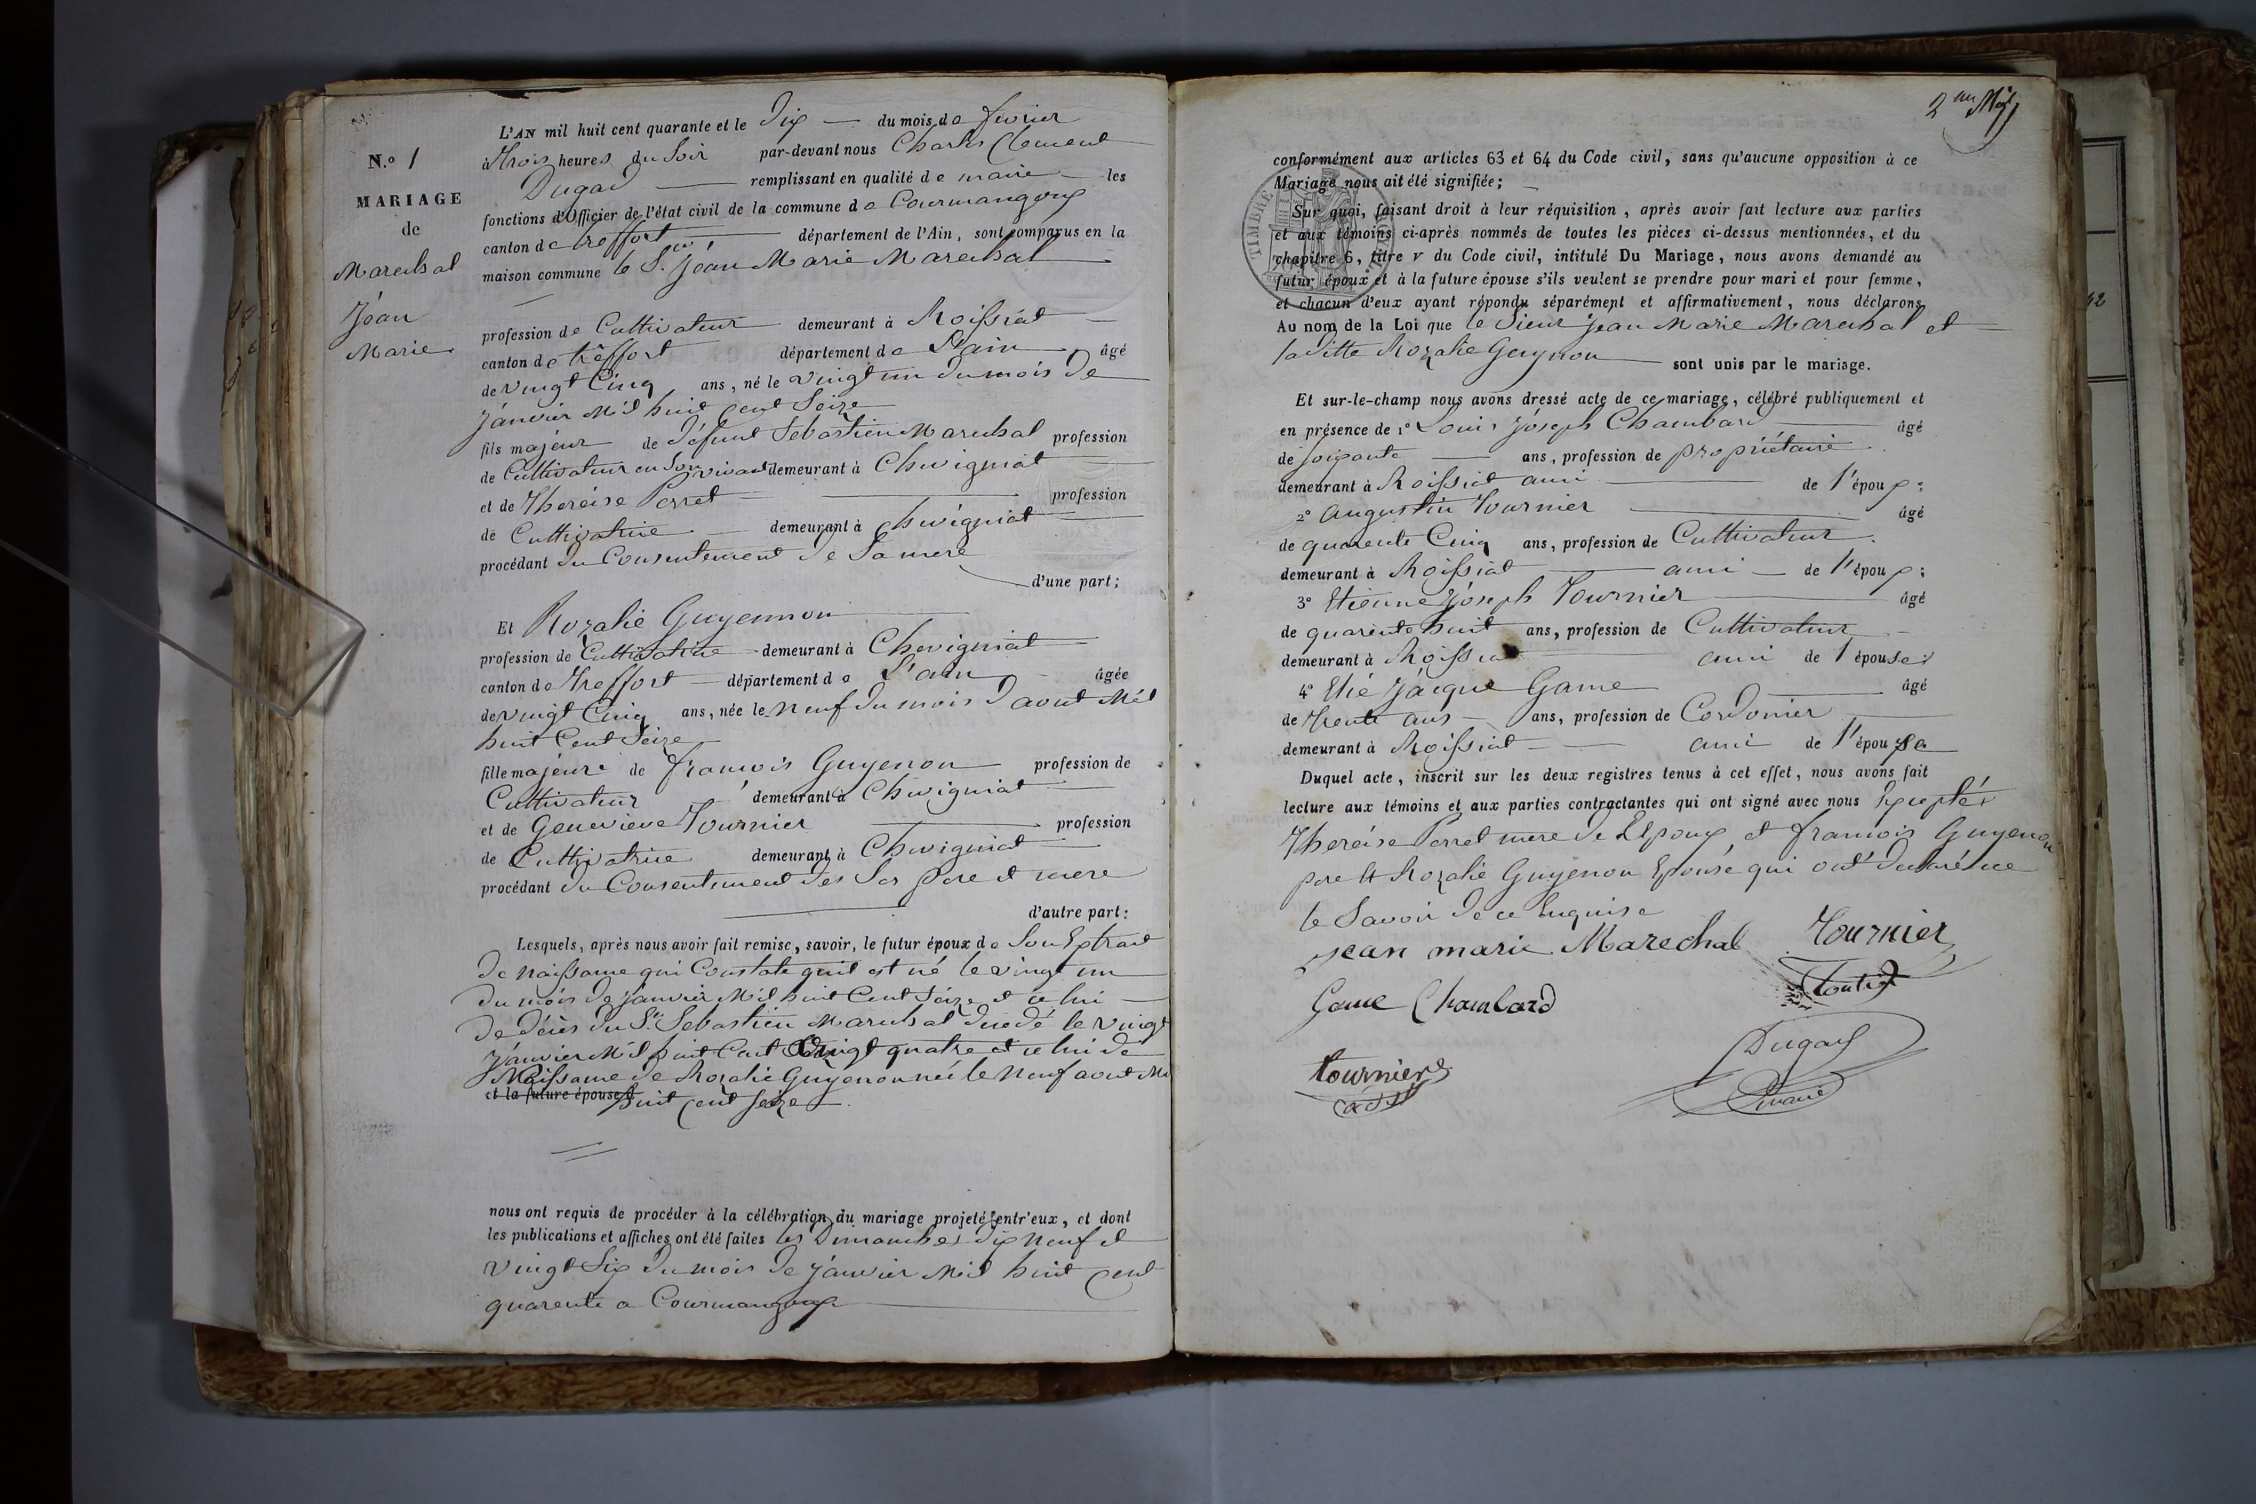 N.o 1
MARIAGE
de
Marechal
Jéan
Marie
L'AN mil huit cent quarante et le Dix du mois de fevrier
à Trois heures du Soir par-devant nous Charles Clement
Dugad remplissant en qualité de maire les
fonctions d'Officier de l'état civil de la commune de Courmangoux
canton de treffort département de l'Ain, sont comparus en la
maison commune le S.r Jéan Marie Marechal
profession de Cultivateur demeurant à Roissiat
canton de treffort département de L'ain âgé
de vingt Cinq ans, né le vingt un du mois de
Janvier Mil huit Cent Seize
fils majeur de défunt Sebastien Marechal profession
de Cultivateur en Son vivant demeurant à Chevigniat
et de Thereise Perret profession
de Cultivatrice demeurant à Chevigniat
procédant du Consentement de Sa mere
d'une part;
Et Rozalie Guyennon
profession de Cultivatrice demeurant à Chevigniat
canton de Treffort département de L'ain âgée
de vingt Cinq ans, née le neuf du mois d'aout Mil
huit Cent Seize
fille majeure de francois Guyenon profession de
Cultivateur demeurant à Chevigniat
et de Genevieve Tournier profession
de Cultivatrice demeurant à Chevigniat
procédant du Consentement des Ses pere et mere
d'autre part:
Lesquels, après nous avoir fait remise, savoir, le futur époux de Son Extrait
de naissance qui Constate quil est né le vingt un
du mois de janvier Mil huit Cent Seize et ce lui
de décès du S.r Sebastien Marechal décédé le vingt
Janvier Mil huit Cent vingt quatre et ce lui de
Naissance de Rozalie Guyenon née le neuf aout Mil
et la future épouse d huit cent seize
nous ont requis de procéder à la célébration du mariage projeté entr'eux, et dont
les publications et affiches ont été faites les Dimanches dix neuf et
vingt Six du mois de janvier Mil huit Cent
quarente a Courmangoux
2me Mge
conformément aux articles 63 et 64 du Code civil, sans qu'aucune opposition à ce
Mariage nous ait été signifiée;
TIMBRE ROYAL
Sur quoi, faisant droit à leur réquisition, après avoir fait lecture aux parties
et aux témoins ci-après nommés de toutes les pièces ci-dessus mentionnées, et du
chapitre 6, titre v du Code civil, intitulé Du Mariage, nous avons demandé au
futur époux et à la future épouse s'ils veulent se prendre pour mari et pour femme,
et chacun d'eux ayant répondu séparément et affirmativement, nous déclarons
Au nom de la Loi que le Sieur Jean Marie Marechal et
la ditte Rozalie Guynon sont unis par le mariage.
Et sur-le-champ nous avons dressé acte de ce mariage, célébré publiquement et
en présence de 1° Louis Jóseph Chambard âgé
de soixante ans, profession de propriétaire
demeurant à Roissiat ami de l'époux:
2° Augustin Tournier âgé
de quarente Cinq ans, profession de Cultivateur
demeurant à Roissiat ami de l'époux:
3° Etienne Jóseph Tournier âgé
de quarente huit ans, profession de Cultivateur
demeurant à Roissiat ami de l'épouse:
4° Elie Jácque Game âgé
de Trente ans ans, profession de Cordonier
demeurant à Roissiat ami de l'épouse
Duquel acte, inscrit sur les deux registres tenus à cet effet, nous avons fait
lecture aux témoins et aux parties contractantes qui ont signé avec nous Exceptés
Thereise Perret mere de L'Epoux et francois Guyenon
pere et Rozalie Guyenon Epouse qui ont déclaré ne
le Savoir de ce Enquise
jean marie Marechal Tournier
Game Chambard
tournier
Dugad
maire